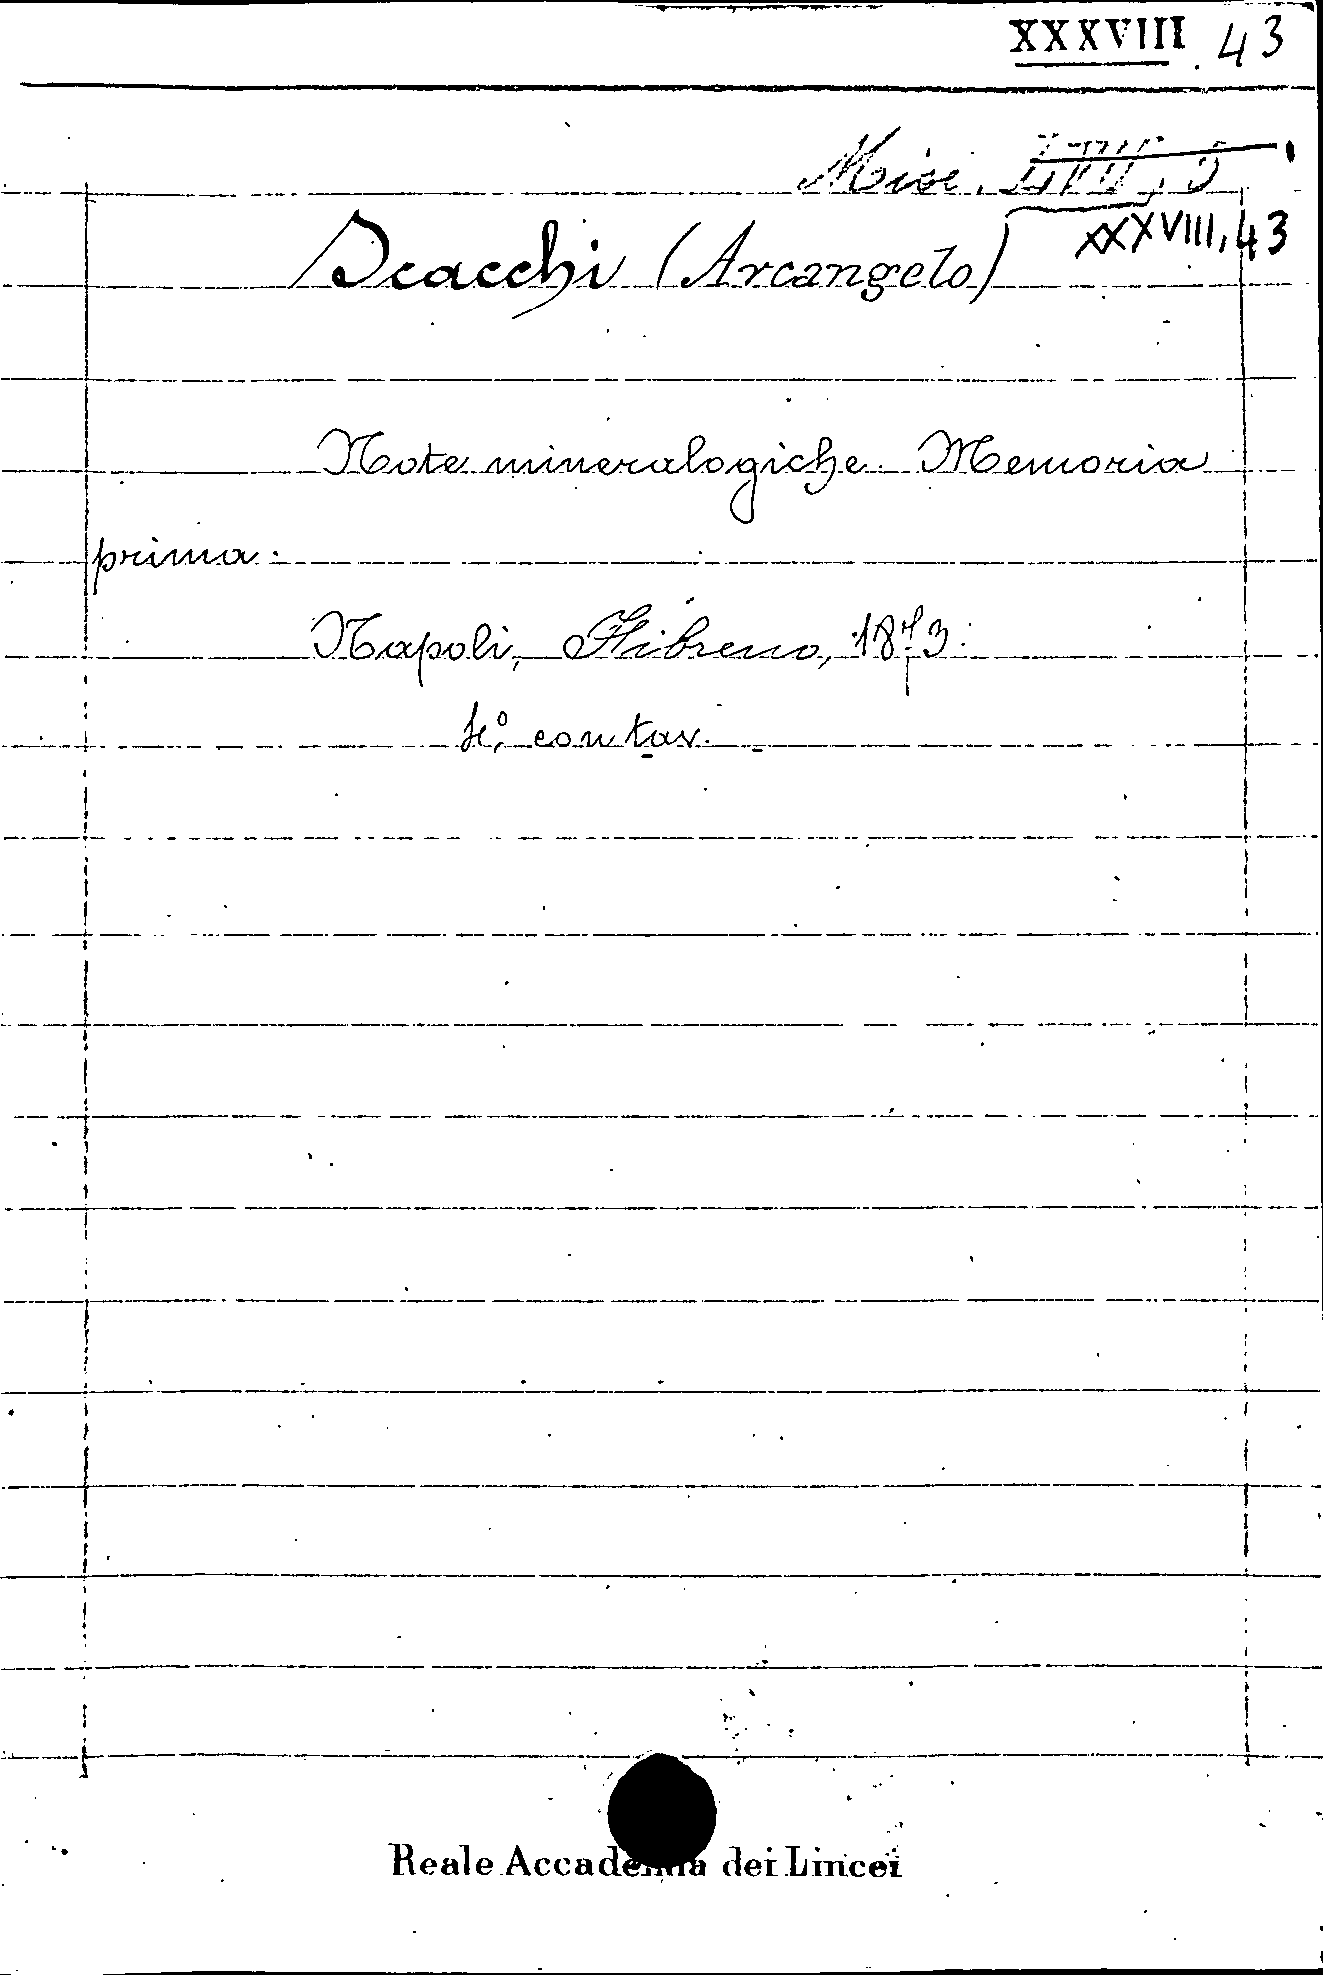 XXXVIII. 43
Misc. LVII, 5
XXXVIII, 43
Scacchi (Arcangelo)
Note mineralogiche. Memoria
prima.
Napoli, Fibreno, 1873.
4.° con tav.
Reale Accademia dei Lincei